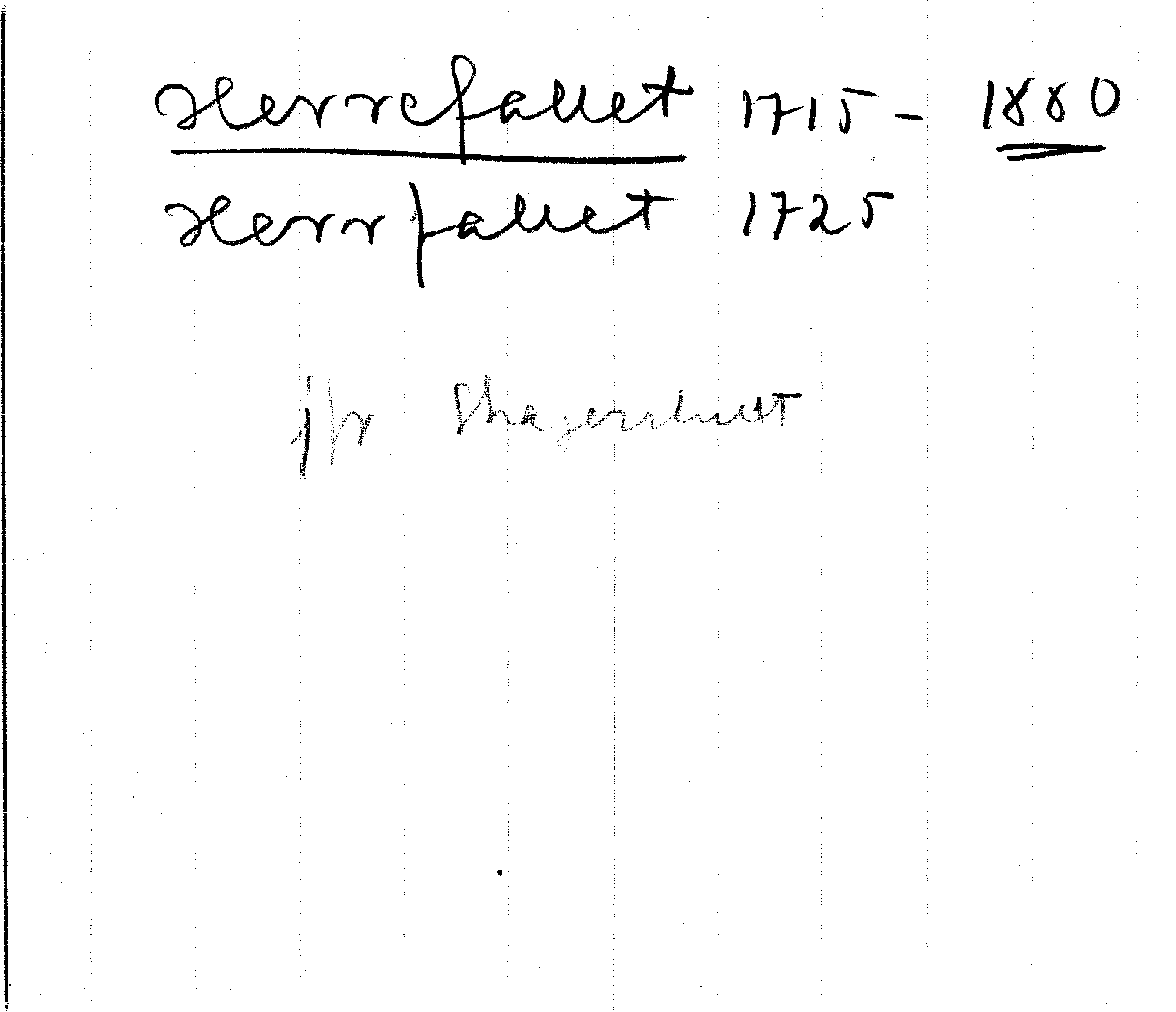 Herrefallet 1715 - 1880
Herrfallet 1725
jfr